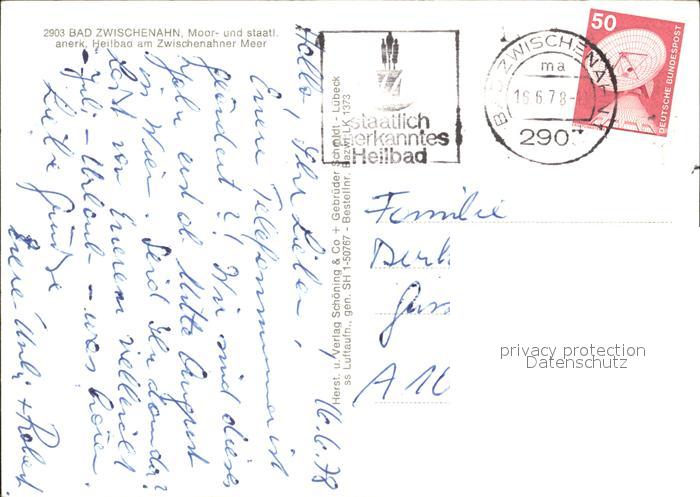 2903 BAD ZWISCHENAHN, Moor- und staatl.
anerk. Heilbad am Zwischenahner Meer
Hallo, Ihr Lieben,
16.6.78
Eure Telefonnummer ist
geändert?! Wir sind dieses
Jahr erst ab Mitte August
in Wien. Seid Ihr dann da?
Laßt von Eurem vielleicht
Juli-Urlaub - was hören.
Liebe Grüße
Eure + Robert
Herst. u. Verlag Schöning & Co + Gebrüder Schmidt - Lübeck
ss Luftaufn., gen. SH 1-50767 - Bestellnr. Bazwi LK 1373
staatlich
anerkanntes
Heilbad
BAD ZWISCHENAHN
ma
16.6.78-
290
50
DEUTSCHE BUNDESPOST
Familie
A 10
privacy protection
Datenschutz